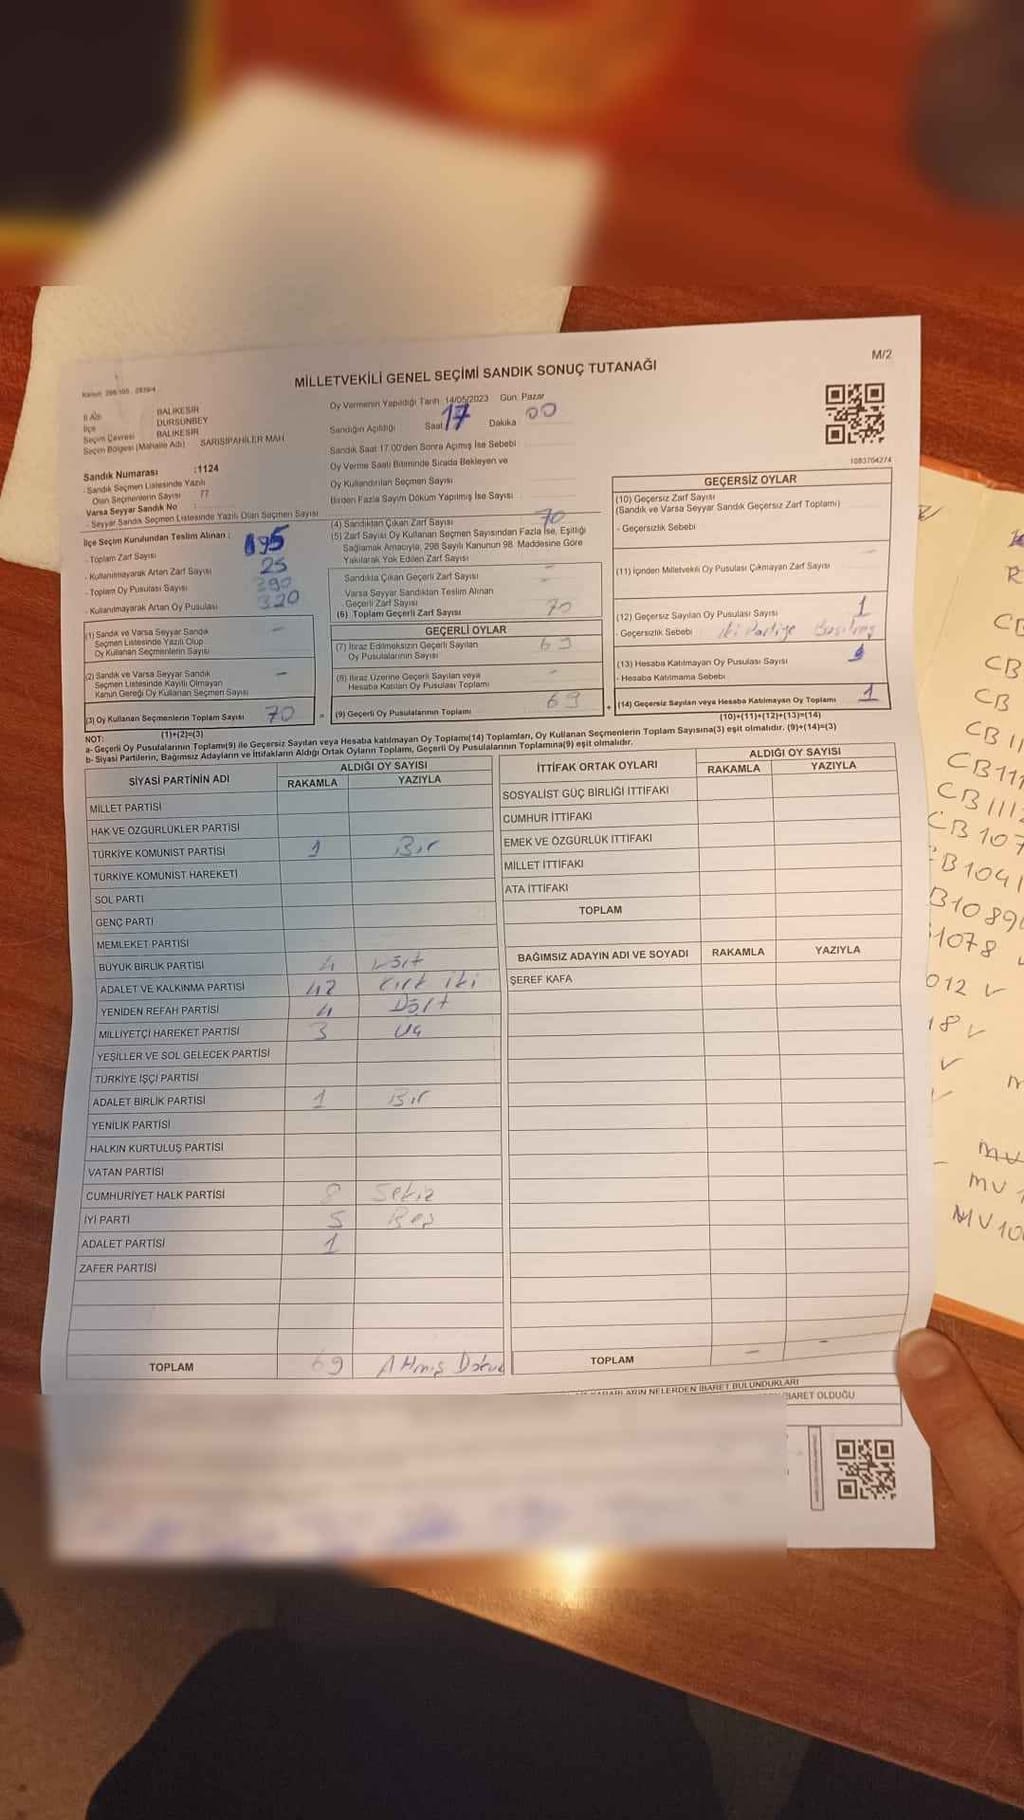 M/2
MİLLETVEKİLİ GENEL SEÇİMİ SANDIK SONUÇ TUTANAĞI
İl Adı BALIKESİR
İlçe DURSUNBEY
Seçim Çevresi BALIKESİR
Seçim Bölgesi (Mahalle Adı) SARISIPAHİLER MAH
Sandık Numarası :1124
Sandık Seçmen Listesinde Yazılı
Olan Seçmenlerin Sayısı 77
Varsa Seyyar Sandık No
- Seyyar Sandık Seçmen Listesinde Yazılı Olan Seçmen Sayısı
Oy Vermenin Yapıldığı Tarih 14/05/2023 Gün Pazar
Sandığın Açıldığı Saat 17 Dakika 00
Sandık Saat 17.00'den Sonra Açımış İse Sebebi
Oy Verme Saati Bitiminde Sırada Bekleyen ve
Oy Kullandırılan Seçmen Sayısı
Birden Fazla Sayım Döküm Yapılmış İse Sayısı
1083704274
İlçe Seçim Kurulundan Teslim Alınan :
- Toplam Zarf Sayısı 195
- Kullanılmayarak Artan Zarf Sayısı 25
- Toplam Oy Pusulası Sayısı
- Kullanılmayarak Artan Oy Pusulası 320
(1) Sandık ve Varsa Seyyar Sandık
Seçmen Listesinde Yazılı Olup
Oy Kullanan Seçmenlerin Sayısı -
(2) Sandık ve Varsa Seyyar Sandık
Seçmen Listesinde Kayıtlı Olmayan
Kanun Gereği Oy Kullanan Seçmen Sayısı -
(3) Oy Kullanan Seçmenlerin Toplam Sayısı 70
(1)+(2)=(3)
(4) Sandıktan Çıkan Zarf Sayısı 70
(5) Zarf Sayısı Oy Kullanan Seçmen Sayısından Fazla İse, Eşitliği
Sağlamak Amacıyla, 298 Sayılı Kanunun 98. Maddesine Göre
Yakılarak Yok Edilen Zarf Sayısı -
Sandıkta Çıkan Geçerli Zarf Sayısı -
Varsa Seyyar Sandıktan Teslim Alınan
Geçerli Zarf Sayısı
(6) Toplam Geçerli Zarf Sayısı 70
GEÇERLİ OYLAR
(7) İtiraz Edilmeksizin Geçerli Sayılan
Oy Pusulalarının Sayısı 69
(8) İtiraz Üzerine Geçerli Sayılan veya
Hesaba Katılan Oy Pusulası Toplamı -
(9) Geçerli Oy Pusulalarının Toplamı 69
GEÇERSİZ OYLAR
(10) Geçersiz Zarf Sayısı
(Sandık ve Varsa Seyyar Sandık Geçersiz Zarf Toplamı)
- Geçersizlik Sebebi
(11) İçinden Milletvekili Oy Pusulası Çıkmayan Zarf Sayısı -
(12) Geçersiz Sayılan Oy Pusulası Sayısı 1
- Geçersizlik Sebebi iki Partiye Basılmış
(13) Hesaba Katılmayan Oy Pusulası Sayısı
- Hesaba Katılmama Sebebi
(14) Geçersiz Sayılan veya Hesaba Katılmayan Oy Toplamı 1
(10)+(11)+(12)+(13)=(14)
NOT:
a- Geçerli Oy Pusulalarının Toplamı(9) ile Geçersiz Sayılan veya Hesaba katılmayan Oy Toplamı(14) Toplamları, Oy Kullanan Seçmenlerin Toplam Sayısına(3) eşit olmalıdır. (9)+(14)=(3)
b- Siyasi Partilerin, Bağımsız Adayların ve İttifakların Aldığı Ortak Oyların Toplamı, Geçerli Oy Pusulalarının Toplamına(9) eşit olmalıdır.
SİYASİ PARTİNİN ADI ALDIĞI OY SAYISI
RAKAMLA YAZIYLA
MİLLET PARTİSİ
HAK VE ÖZGÜRLÜKLER PARTİSİ
TÜRKİYE KOMÜNİST PARTİSİ 1 Bir
TÜRKİYE KOMÜNİST HAREKETİ
SOL PARTİ
GENÇ PARTİ
MEMLEKET PARTİSİ
BÜYÜK BİRLİK PARTİSİ 4 Dört
ADALET VE KALKINMA PARTİSİ 42 Kırk iki
YENİDEN REFAH PARTİSİ 4 Dört
MİLLİYETÇİ HAREKET PARTİSİ 3 Üç
YEŞİLLER VE SOL GELECEK PARTİSİ
TÜRKİYE İŞÇİ PARTİSİ
ADALET BİRLİK PARTİSİ 1 Bir
YENİLİK PARTİSİ
HALKIN KURTULUŞ PARTİSİ
VATAN PARTİSİ
CUMHURİYET HALK PARTİSİ 8 Sekiz
İYİ PARTİ 5 Beş
ADALET PARTİSİ 1
ZAFER PARTİSİ
TOPLAM 69 Altmış Dokuz
İTTİFAK ORTAK OYLARI ALDIĞI OY SAYISI
RAKAMLA YAZIYLA
SOSYALİST GÜÇ BİRLİĞİ İTTİFAKI
CUMHUR İTTİFAKI
EMEK VE ÖZGÜRLÜK İTTİFAKI
MİLLET İTTİFAKI
ATA İTTİFAKI
TOPLAM
BAĞIMSIZ ADAYIN ADI VE SOYADI RAKAMLA YAZIYLA
ŞEREF KAFA
TOPLAM - -
NELERDEN İBARET BULUNDUKLARI
İBARET OLDUĞU
CB
CB
CB
CB 11
CB 111
CB 111
CB 107
B 1041
B1089
1078
012 ✓
18 ✓
MV
MV
MV 10